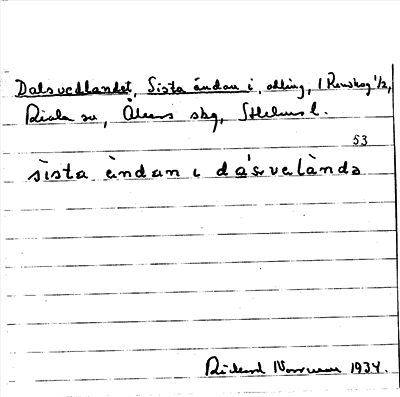 Dalsvedlandet, Sista ändan i, odling, 1 Renskog 1/2,
Riala sn, Åkers skg, Sthlms l.
53
sista ändan i dásvelànda
Rickard 1934.